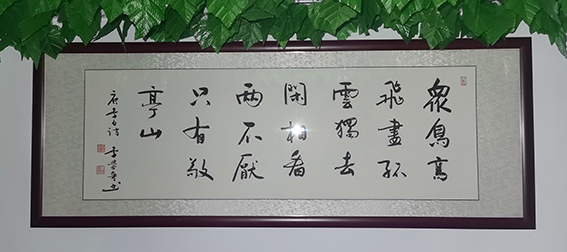 眾鳥高
飛盡孤
雲獨去
閑相看
兩不厭
只有敬
亭山
唐李白詩